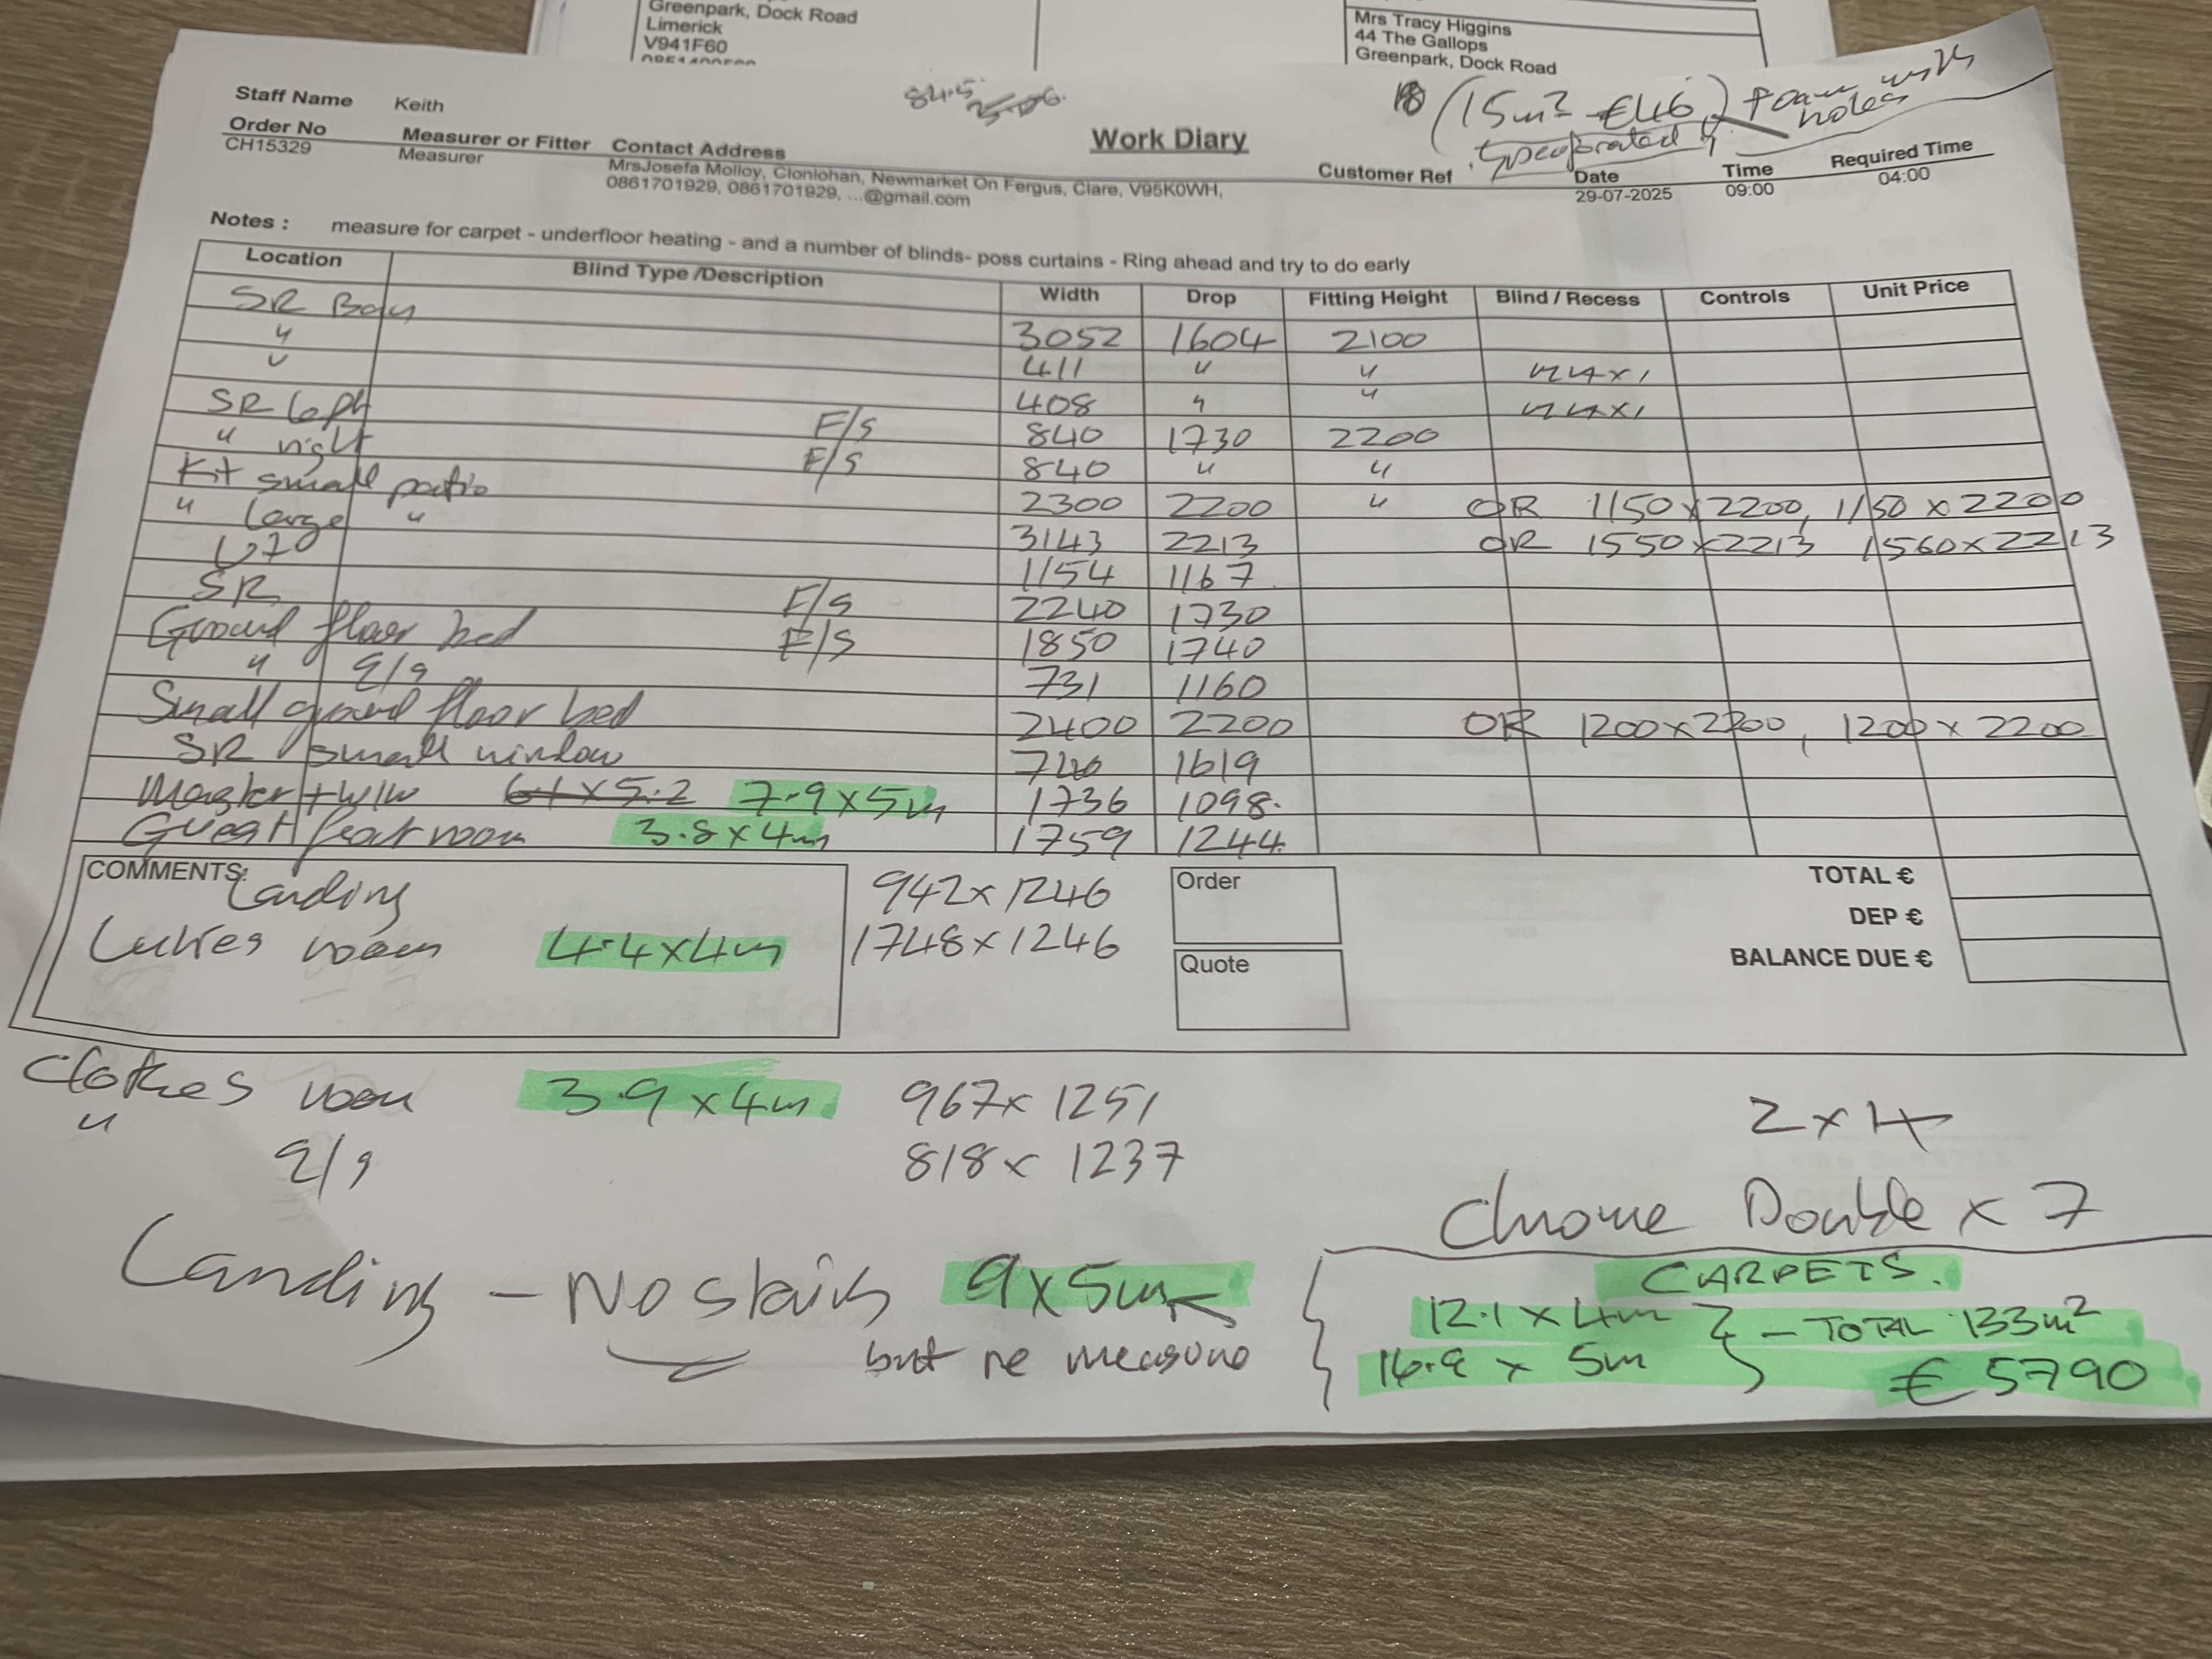 Greenpark, Dock Road
Limerick
V941F60
Mrs Tracy Higgins
44 The Gallops
Greenpark, Dock Road
Staff Name Keith
84.5
(15m² - €46) Foam with
holes
Work Diary
Order No Measurer or Fitter Contact Address Customer Ref Date Time Required Time
CH15329 Measurer MrsJosefa Molloy, Clonlohan, Newmarket On Fergus, Clare, V95K0WH, 29-07-2025 09:00 04:00
0861701929, 0861701929, ...@gmail.com
Notes : measure for carpet - underfloor heating - and a number of blinds- poss curtains - Ring ahead and try to do early
Location Blind Type /Description Width Drop Fitting Height Blind / Recess Controls Unit Price
SR Bay 3052 1604 2100
" 411 " "
" 408 " "
SR left F/S 840 1730 2200
" right F/S 840 " "
Kit small patio 2300 2200 " OR 1150 x 2200, 1150 x 2200
" large " 3143 2213 OR 1550 x 2213 1560 x 2213
1154 1167
SR F/S 2240 1730
Ground floor bed F/S 1850 1740
" 731 1160
Small ground floor bed 2400 2200 OR 1200 x 2200, 1200 x 2200
SR small window 1619
Master + W/W 7.9 x 5m 1736 1098.
Guest 4m 1759 1244
COMMENTS:
Landing 942 x 1246
room 4.4 x 4m 1748 x 1246
Order
Quote
TOTAL €
DEP €
BALANCE DUE €
Clothes room 3.9 x 4m 967 x 1251
" 818 x 1237
2 x
Chrome Double x 7
Landing - No stairs 9 x 5m
but re measure
CARPETS.
12.1 x 4m } - TOTAL 133m²
16.9 x 5m
€5790